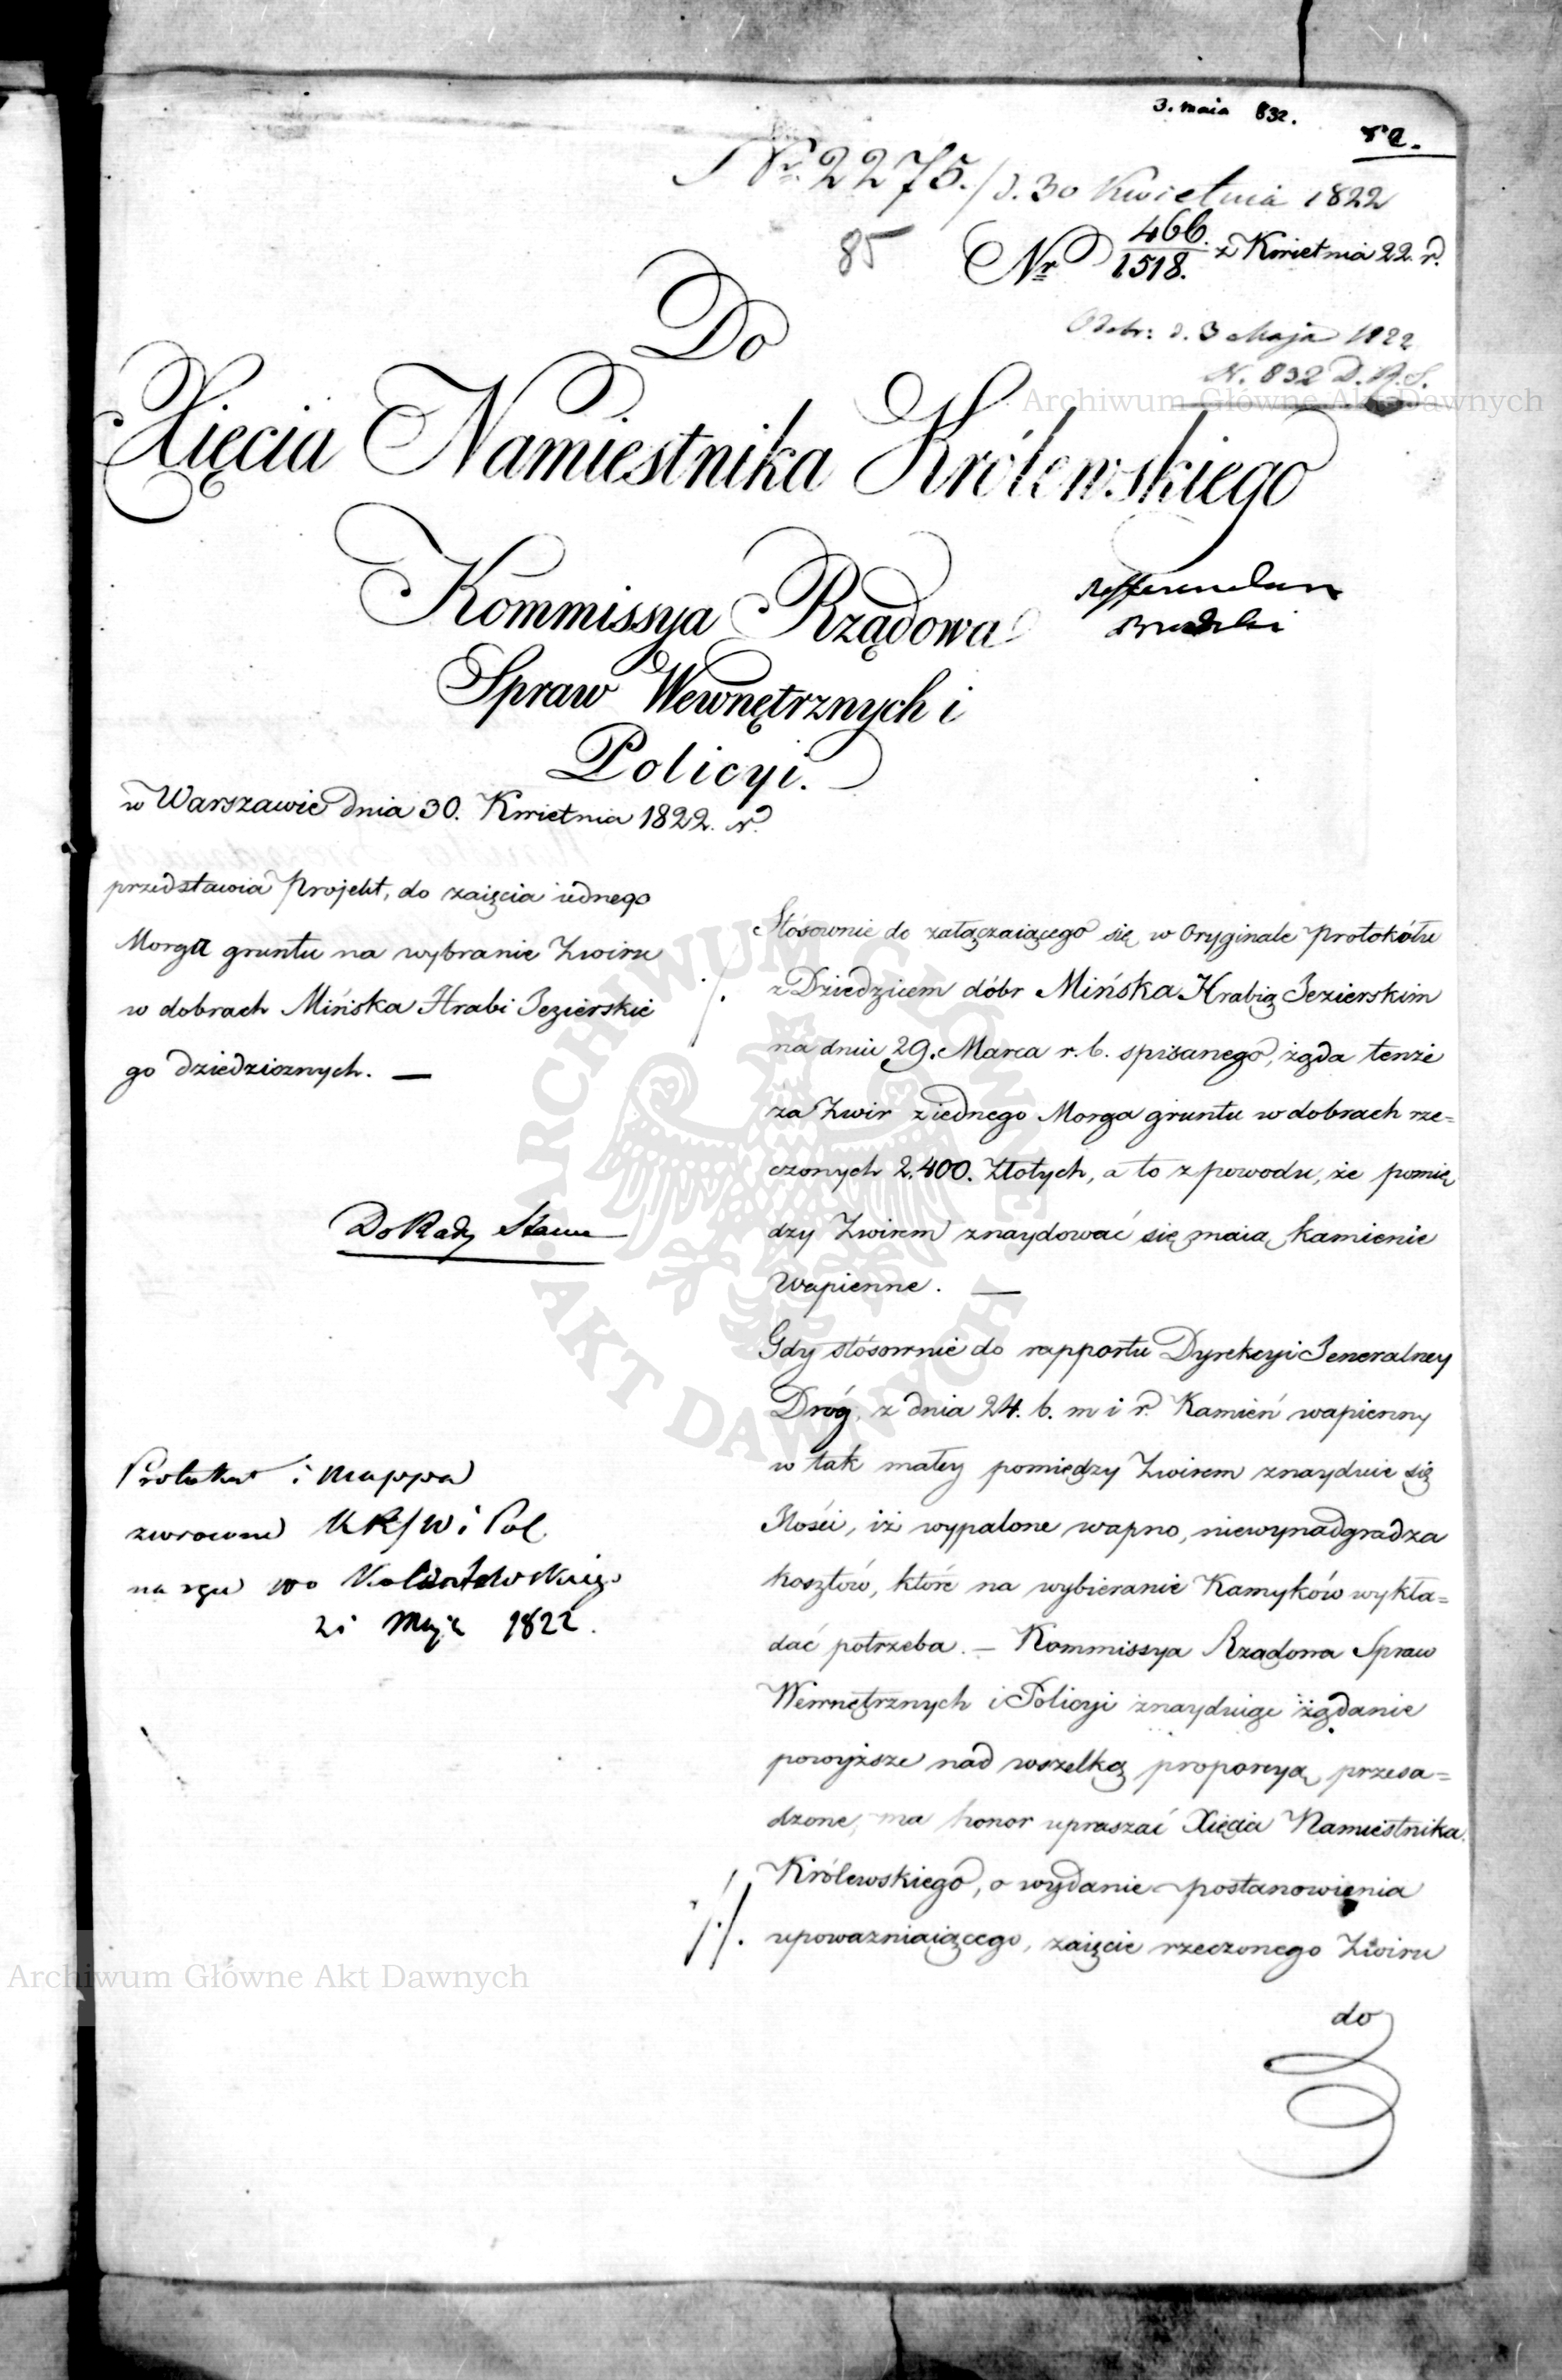 3. maia 832.
Nr. 2275. / d. 30 Kwietnia 1822
85
Nr 466./1518. z Kwietnia 22. r.
Odebr: d. 3 Maja 1822
N. 832 D.R.S.
Do
Xięcia Namiestnika Królewskiego
Kommissya Rządowa
Spraw Wewnętrznych i
Policyi.
w Warszawie dnia 30. Kwietnia 1822. r.
przedstawia Projekt, do zaięcia iednego
Morga gruntu na wybranie Zwiru
w dobrach Mińska Hrabi Jezierskie
go dziedzicznych. —
Do Rady Stanu
Protokuł i mappa
zwrocone KRSW i Pol
na ręce
21 Maja 1822.
Stósownie do załączaiącego się w Oryginale Protokółu
z Dziedzicem dóbr Mińska Hrabią Jezierskim
na dniu 29. Marca r. b. spisanego, żąda tenże
za Zwir z iednego Morga gruntu w dobrach rze=
czonych 2,400. Złotych, a to z powodu, że pomię
dzy Zwirem znaydować się maią kamienie
Wapienne. —
Gdy stósownie do rapportu Dyrekcyi Jeneralney
Dróg, z dnia 24. b. m i r. Kamień wapienny
w tak małey pomiędzy Zwirem znayduie się
Ilości, iż wypalone wapno, niewynadgradza
kosztów, które na wybieranie Kamyków wykła=
dać potrzeba. — Kommissya Rządowa Spraw
Wewnętrznych i Policyi znayduiąc żądanie
powyższe nad wszelką proporcyą przesa=
dzone, ma honor upraszać Xięcia Namiestnika
Królewskiego, o wydanie postanowienia
upoważniaiącego, zaięcie rzeczonego Zwiru
do
Archiwum Główne Akt Dawnych
Archiwum Główne Akt Dawnych
ARCHIWUM GŁÓWNE
AKT DAWNYCH